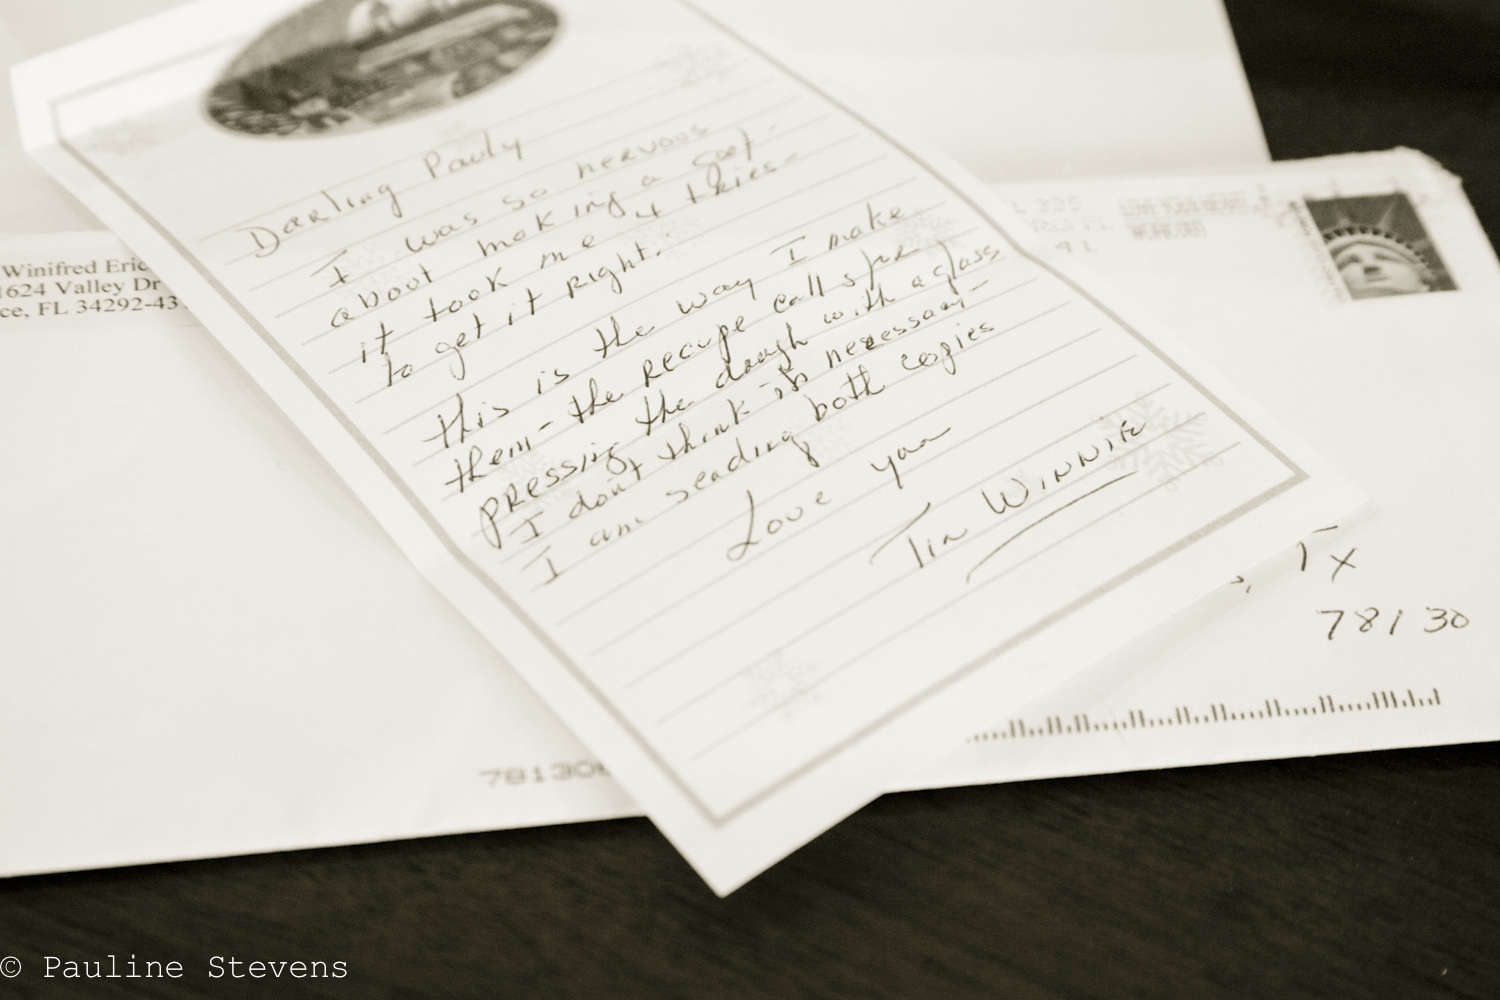 Darling Pauly
I was so nervous
about making a goof -
it took me 4 tries -
to get it right.
This is the way I make
them - the recipe calls for
pressing the dough with a glass
I don't think it's necessary -
I am sending both copies
Love you
Tia Winnie
Winifred Eric
1624 Valley Dr
ce, FL 34292-43
TX
78130
78130
© Pauline Stevens